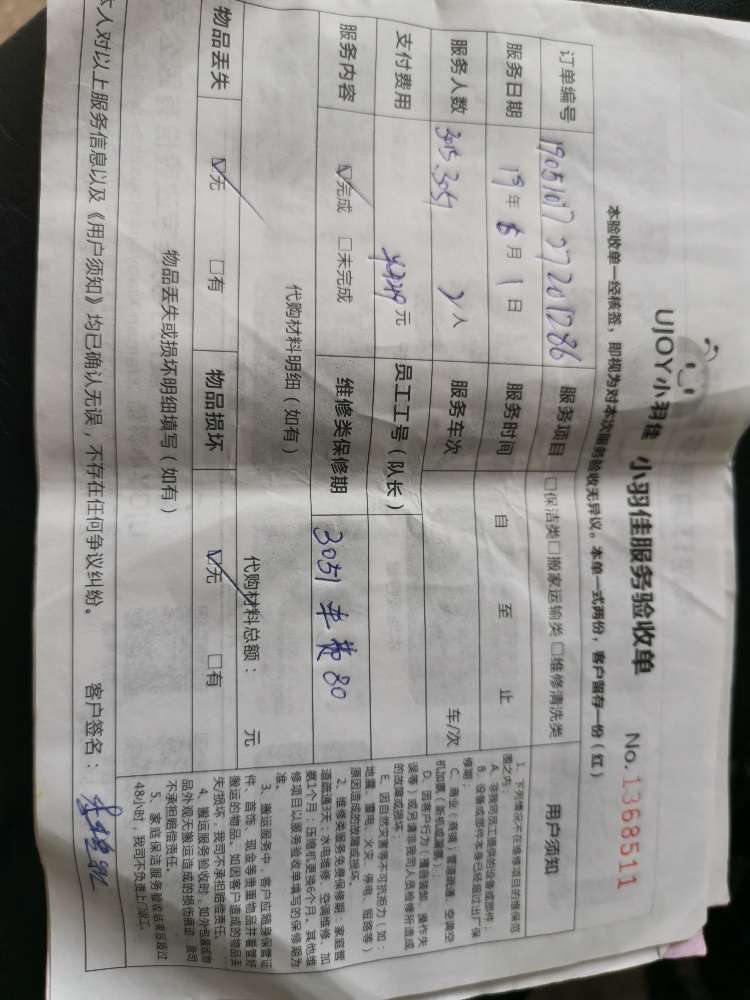 UJOY小羽佳 小羽佳服务验收单 No.1368511
本验收单一经核签，即视为对本次服务验收无异议。本单一式两份，客户留存一份（红）
订单编号 服务项目 □保洁类□搬家运输类□维修清洗类
服务日期 19年6月1日 服务时间 自 至 止
服务人数 3015.3051 2人 服务车次 车/次
支付费用 元 员工工号（队长）
服务内容 ☑完成 □未完成 维修类保修期 3051 车费80
代购材料明细（如有） 代购材料总额： 元
物品丢失 ☑无 □有 物品损坏 ☑无 □有
物品丢失或损坏明细填写（如有）
本人对以上服务信息以及《用户须知》均已确认无误，不存在任何争议纠纷。 客户签名：
用户须知
1、下列情况不在维修项目的维保范
围之内：
A、非我司员工造成的设备或部件；
B、设备或部件本身已经超过出厂保
修期；
C、商业（商铺）管道疏通、空调空
机加氟（新机或漏氟）；
D、因客户行为（擅自装卸、操作失
误等）或另请非我司人员检修所造成
的故障或损坏；
E、因自然灾害等不可抗拒力（如：
地震、雷电、火灾、停电、短路等）
原因造成的故障或损坏。
2、维修类服务免费保修期：家庭管
道疏通3天；水电维修、空调维修、加
氟1个月；压缩机更换6个月。其他维
修项目以服务验收单填写的保修期为
准。
3、搬运服务中，客户应随身保管证
件、首饰、现金等贵重物品并看管好
搬运的物品。如因客户造成的物品丢
失/损坏，我司不承担赔偿责任。
4、搬运服务验收时，如外包装或物
品外观无搬运造成的损伤痕迹，我司
不承担赔偿责任。
5、家庭保洁服务验收结束后超过
48小时，我司不负责上门返工。